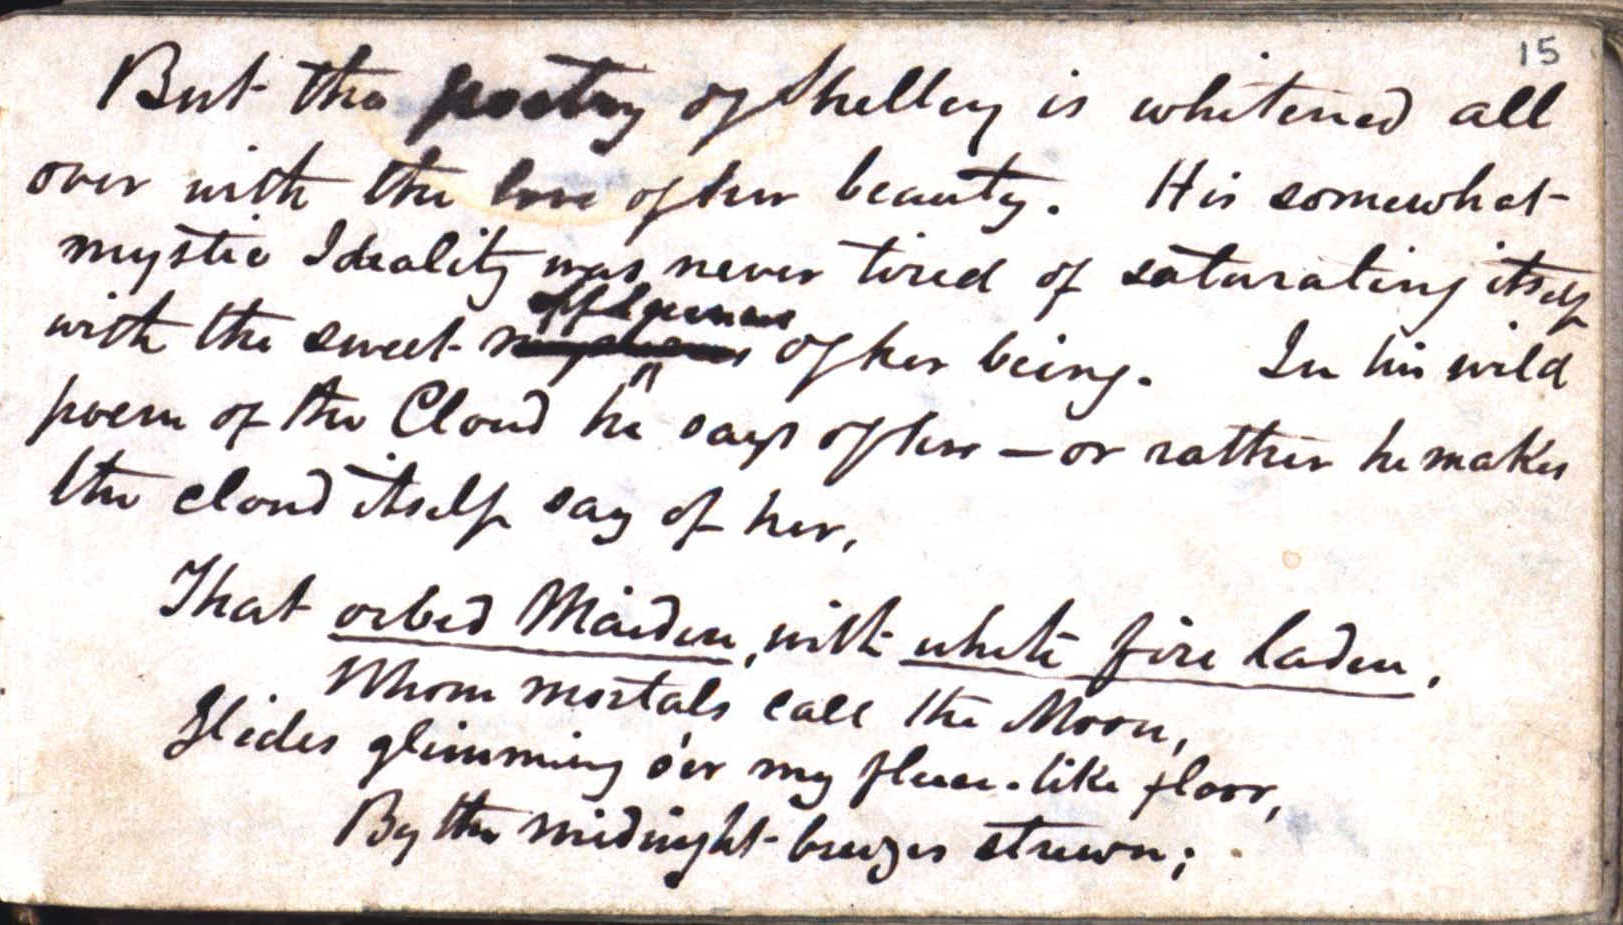 15
But the poetry of Shelley is whitened all
over with the love of her beauty. His somewhat
mystic Ideality was never tired of saturating itself
effluences
with the sweet of her being. In his wild
poem of the Cloud he says of her — or rather he makes
the cloud itself say of her,
That orbed Maiden, with white fire laden,
Whom mortals call the Moon,
Glides glimmring o'er my fleece-like floor,
By the midnight breezes strewn;